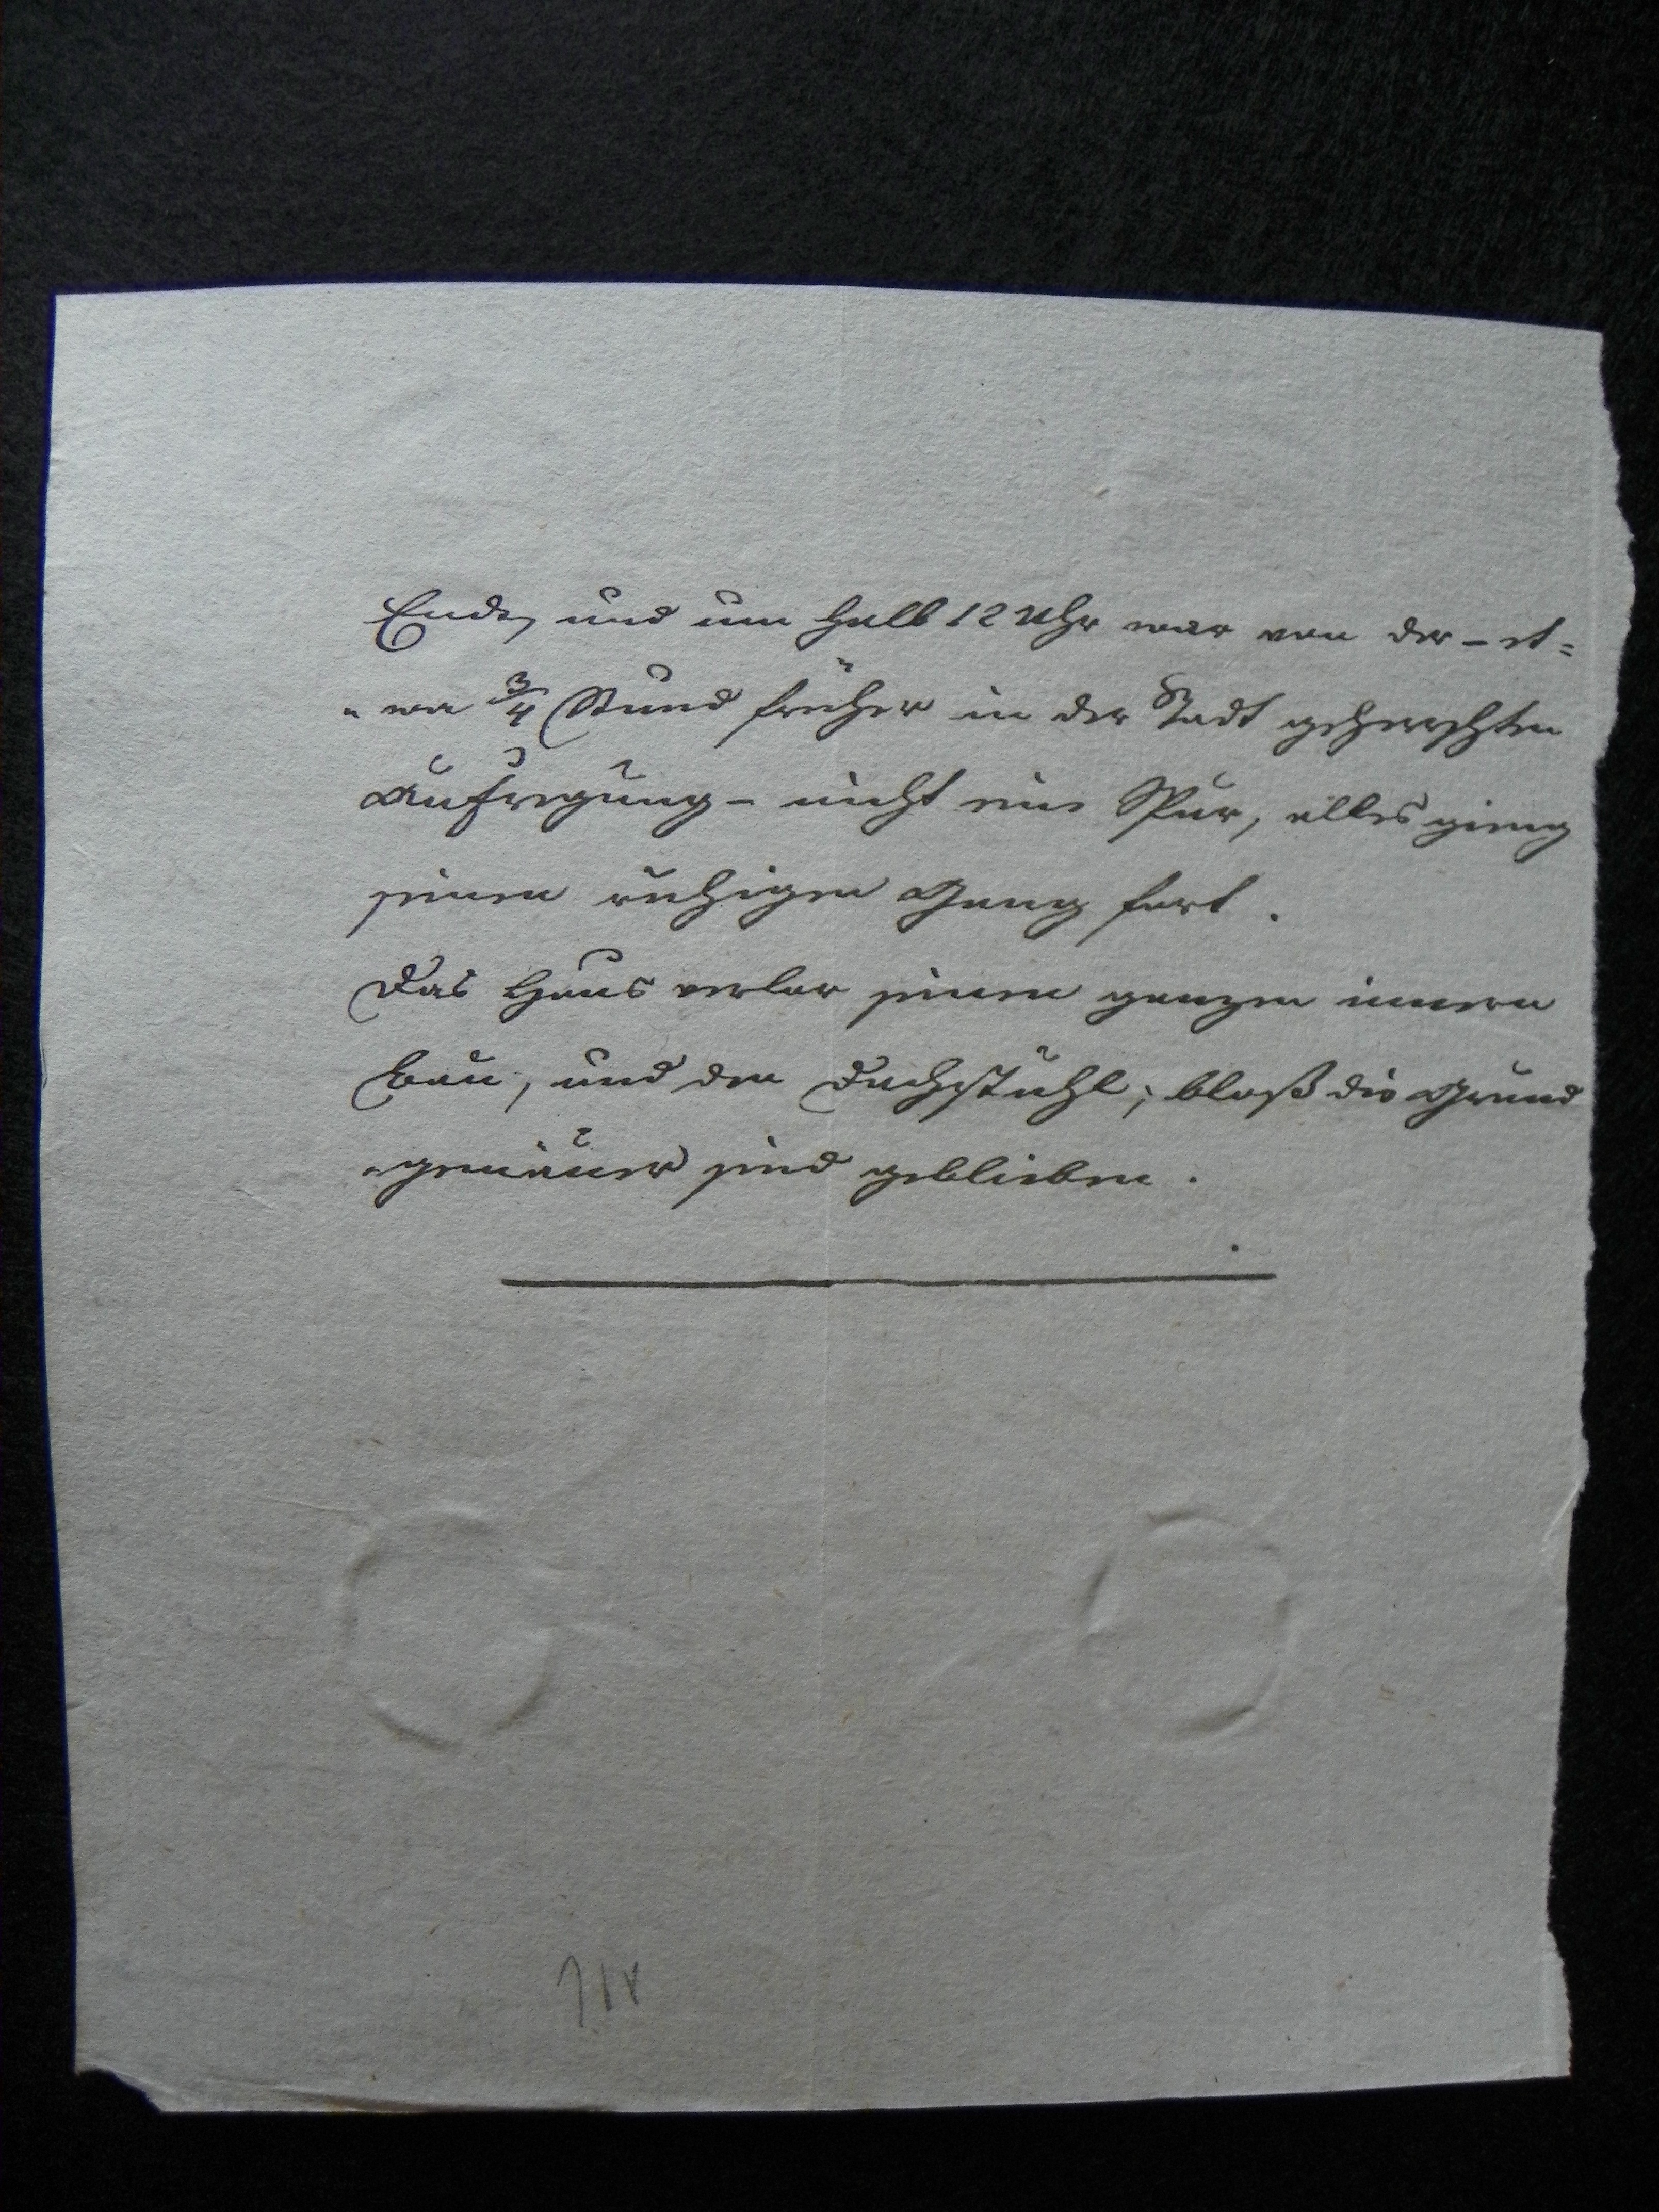 Ende, und um halb 12 Uhr war von der - et=
"wa 3/4 Stund früher in der Stadt geherrschten
Aufregung - nicht eine Spur, alles gieng
seinen ruhigen Gang fort.
Das Haus verlor seinen ganzen innern
Bau, und den Dachstuhl; bloß die Grund
"gemäuer sind geblieben.